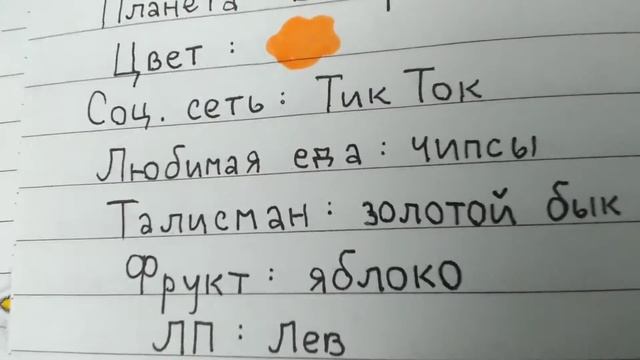 Планета
Цвет :
Соц. сеть : Тик Ток
Любимая еда : чипсы
Талисман : золотой бык
Фрукт : яблоко
ЛП : Лев